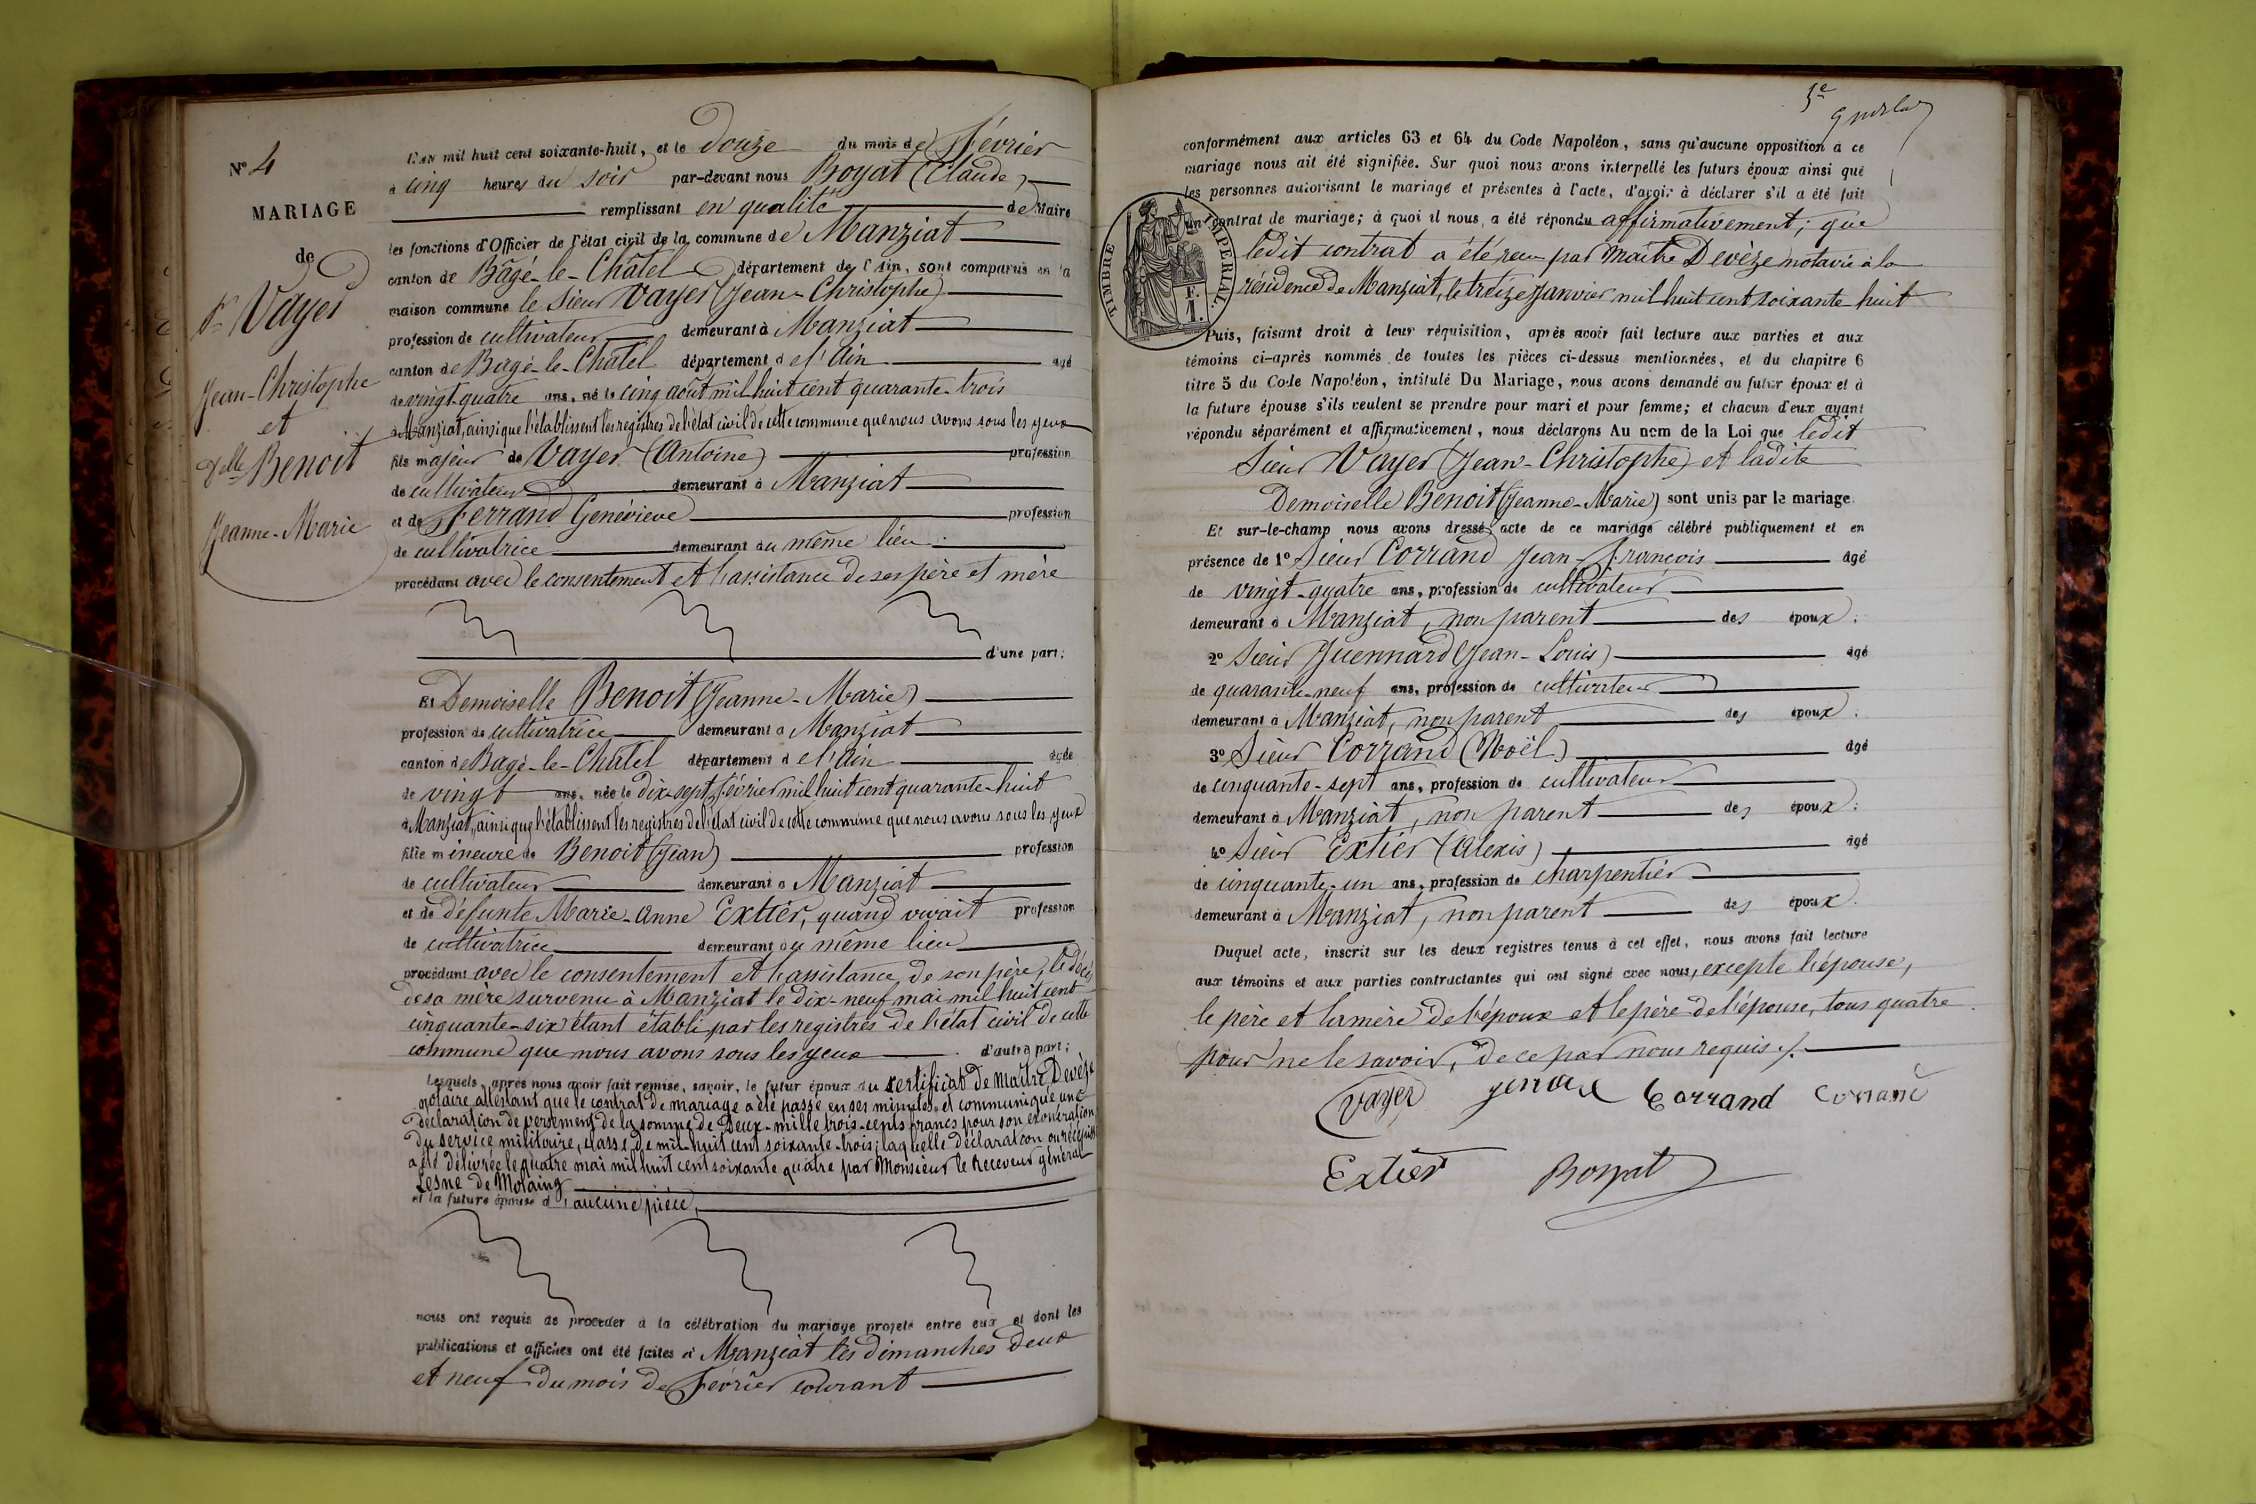 N° 4
MARIAGE
de
Sr Vayer
Jean-Christophe
et
Delle Benoit
Jeanne-Marie
L'an mil huit cent soixante-huit, et le douze du mois de Février
à cinq heures du soir par-devant nous Boyat (Claude)
remplissant en qualité de Maire
les fonctions d'Officier de l'état civil de la commune de Manziat
canton de Bâgé-le-Châtel département de l'Ain, sont comparus en la
maison commune le Sieur Vayer (Jean-Christophe)
profession de cultivateur demeurant à Manziat
canton de Bâgé-le-Châtel département de l'Ain âgé
de vingt-quatre ans, né le cinq août mil huit cent quarante-trois
à Manziat, ainsi que l'établissent les registres de l'état civil de cette commune que nous avons sous les yeux
fils majeur de Vayer (Antoine) profession
de cultivateur demeurant à Manziat
et de Ferrand Geneviève profession
de cultivatrice demeurant au même lieu.
procédant avec le consentement et l'assistance de ses père et mère
d'une part;
Et Demoiselle Benoit (Jeanne-Marie)
profession de cultivatrice demeurant à Manziat
canton de Bagé-le-Châtel département de l'Ain âgée
de vingt ans, née le dix-sept Février mil huit cent quarante-huit
à Manziat, ainsi que l'établissent les registres de l'état civil de cette commune que nous avons sous les yeux
fille mineure de Benoit (Jean) profession
de cultivateur demeurant à Manziat
et de défunte Marie-Anne Extier, quand vivait profession
de cultivatrice demeurant au même lieu
procédant avec le consentement et l'assistance de son père, le décès
de sa mère survenu à Manziat le dix-neuf mai mil huit cent
cinquante-six étant établi par les registres de l'état civil de cette
commune que nous avons sous les yeux d'autre part;
Lesquels, après nous avoir fait remise, savoir, le futur époux du certificat de Maître Devèze
notaire attestant que le contrat de mariage a été passé en ses minutes et communiqué une
déclaration de versement de la somme de Deux-mille trois-cents francs pour son exonération
du service militaire, classe de mil-huit cent soixante-trois; laquelle déclaration ou récépissé
a été délivrée le quatre mai mil huit cent soixante quatre par Monsieur le Receveur général
Lesne de Molaing
et la future épouse d'aucune pièce,
nous ont requis de procéder à la célébration du mariage projeté entre eux et dont les
publications et affiches ont été faites à Manziat les dimanches deux
et neuf du mois de Février courant
5e
conformément aux articles 63 et 64 du Code Napoléon, sans qu'aucune opposition à ce
mariage nous ait été signifiée. Sur quoi nous avons interpellé les futurs époux ainsi que
les personnes autorisant le mariage et présentes à l'acte, d'avoir à déclarer s'il a été fait
un contrat de mariage; à quoi il nous a été répondu affirmativement; que
ledit contrat a été reçu par Maître Devèze notaire à la
résidence de Manziat, le treize Janvier mil huit cent soixante-huit
TIMBRE IMPÉRIAL
F.
1.
Puis, faisant droit à leur réquisition, après avoir fait lecture aux parties et aux
témoins ci-après nommés de toutes les pièces ci-dessus mentionnées, et du chapitre 6
titre 5 du Code Napoléon, intitulé Du Mariage, nous avons demandé au futur époux et à
la future épouse s'ils veulent se prendre pour mari et pour femme; et chacun d'eux ayant
répondu séparément et affirmativement, nous déclarons Au nom de la Loi que ledit
Sieur Vayer (Jean-Christophe) et ladite
Demoiselle Benoit (Jeanne-Marie) sont unis par le mariage.
Et sur-le-champ nous avons dressé acte de ce mariage célébré publiquement et en
présence de 1° Sieur Corrand Jean-François âgé
de vingt-quatre ans, profession de cultivateur
demeurant à Manziat, non parent des époux.
2° Sieur Guennard (Jean-Louis) âgé
de quarante-neuf ans, profession de cultivateur
demeurant à Manziat, non parent des époux.
3° Sieur Corrand (Noël) âgé
de cinquante-sept ans, profession de cultivateur
demeurant à Manziat, non parent des époux.
4° Sieur Extier (Alexis) âgé
de cinquante-un ans, profession de charpentier
demeurant à Manziat, non parent des époux.
Duquel acte, inscrit sur les deux registres tenus à cet effet, nous avons fait lecture
aux témoins et aux parties contractantes qui ont signé avec nous, excepté l'épouse,
le père et la mère de l'époux et le père de l'épouse, tous quatre
pour ne le savoir, de ce par nous requis./.
Vayer Corrand Corrand
Extier Boyat